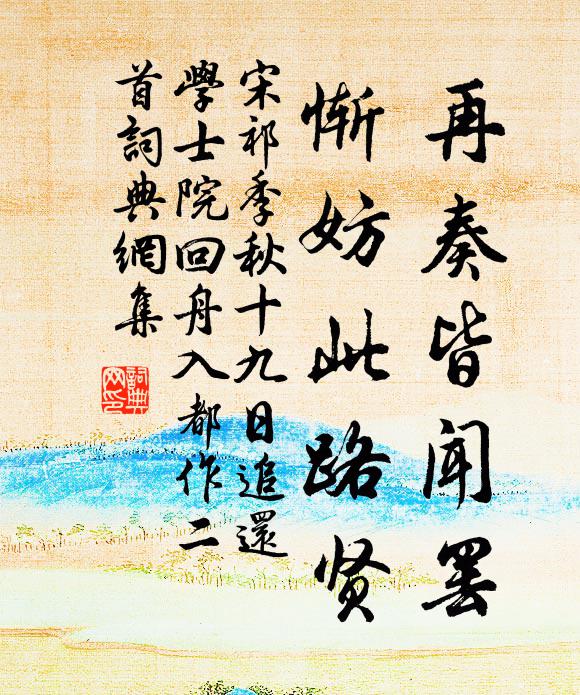 再奏皆闻罢
惭妨此路贤
宋祁季秋十九日追還
學士院回舟入都作二
首詞典網集
詞典
网印